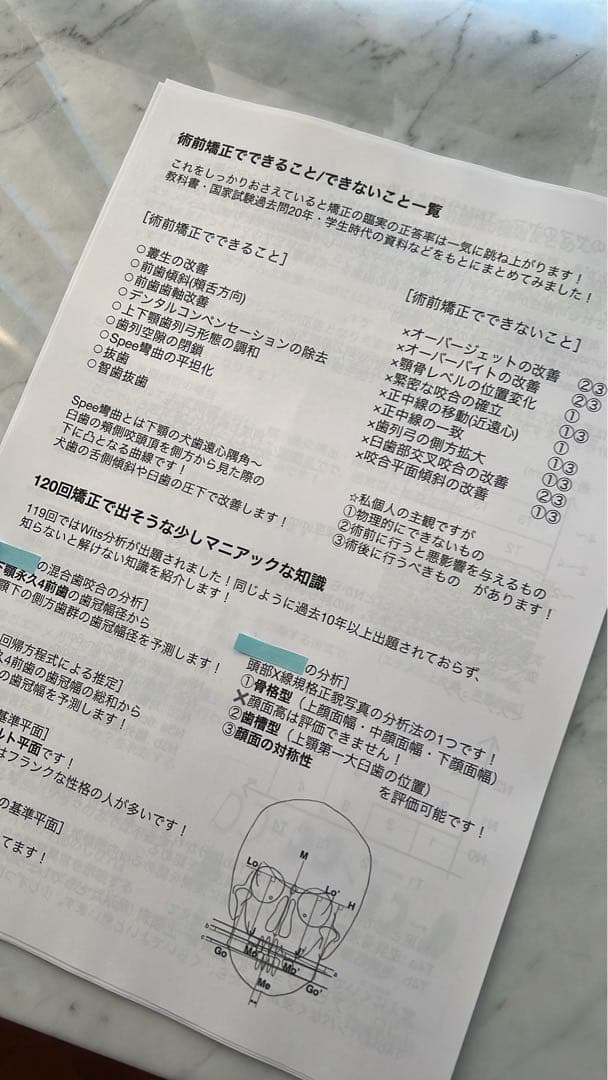 術前矯正でできること/できないこと一覧
これをしっかりおさえていると矯正の臨実の正答率は一気に跳ね上がります！
教科書・国家試験過去問20年・学生時代の資料などをもとにまとめてみました！
［術前矯正でできること］
○叢生の改善
○前歯傾斜(頰舌方向)
○前歯歯軸改善
○デンタルコンペンセーションの除去
○上下顎歯列弓形態の調和
○歯列空隙の閉鎖
○Spee彎曲の平坦化
○抜歯
○智歯抜歯
Spee彎曲とは下顎の犬歯遠心隅角〜
臼歯の頰側咬頭頂を側方から見た際の
下に凸となる曲線です！
犬歯の舌側傾斜や臼歯の圧下で改善します！
［術前矯正でできないこと］
×オーバージェットの改善 ②③
×オーバーバイトの改善 ②③
×顎骨レベルの位置変化 ①
×緊密な咬合の確立 ①③
×正中線の移動(近遠心) ①
×正中線の一致 ①③
×歯列弓の側方拡大 ①③
×臼歯部交叉咬合の改善 ②③
×咬合平面傾斜の改善 ①③
☆私個人の主観ですが
①物理的にできないもの
②術前に行うと悪影響を与えるもの
③術後に行うべきもの が あります！
120回矯正で出そうな少しマニアックな知識
119回ではWits分析が出題されました！同じように過去10年以上出題されておらず、
知らないと解けない知識を紹介します！
の混合歯咬合の分析］
下顎永久4前歯の歯冠幅径から
顎下の側方歯群の歯冠幅径を予測します！
回帰方程式による推定］
久4前歯の歯冠幅の総和から
の歯冠幅を予測します！
基準平面］
ルト平面です！
はフランクな性格の人が多いです！
の基準平面］
てます！
の分析］
頭部X線規格正貌写真の分析法の1つです！
①骨格型（上顔面幅・中顔面幅・下顔面幅）
×顔面高は評価できません！
②歯槽型（上顎第一大臼歯の位置）
③顔面の対称性
を評価可能です！
M
Lo
Lo'
H
a
b
c
Mo
Mo'
a
b
c
Go
Go'
Me